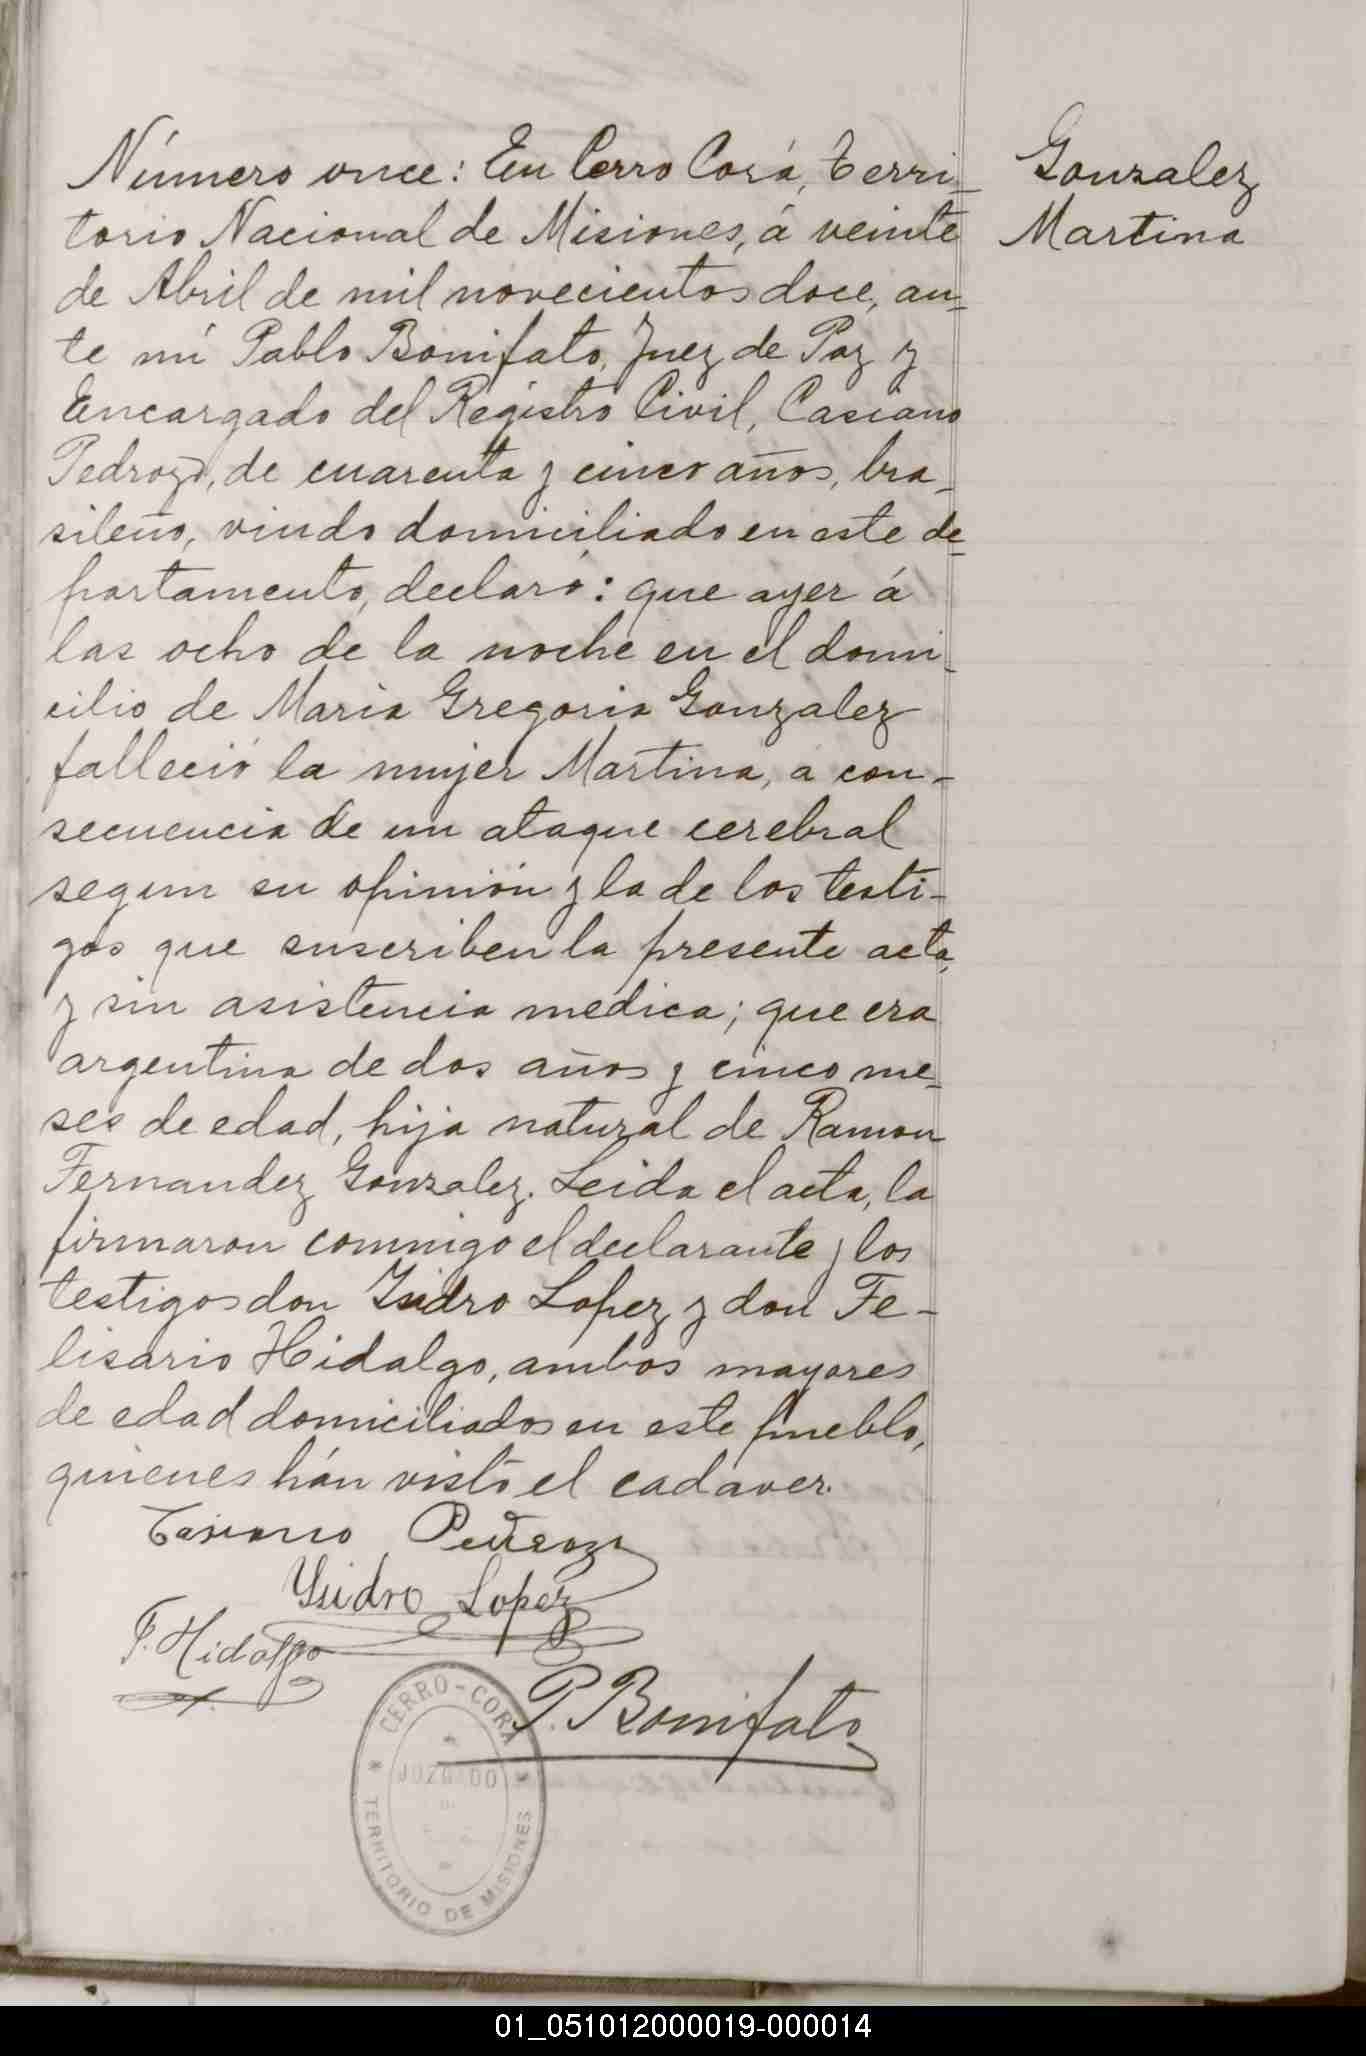 Número once: En Cerro Corá, Terri-
torio Nacional de Misiones, á veinte
de Abril de mil novecientos doce, an-
te mí Pablo Bonifato, Juez de Paz y
Encargado del Régistro Civil, Casiano
Pedrozo, de cuarenta y cinco años, bra-
sileño, viudo domiciliado en este de-
partamento, declaró: que ayer á
las ocho de la noche en el domi-
cilio de Maria Gregoria Gonzalez
falleció la mujer Martina, a con-
secuencia de un ataque cerebral
segun su opinión y la de los testi-
gos que suscriben la presente acta,
y sin asistencia medica; que era
argentina de dos años y cinco me-
ses de edad, hija natural de Ramon
Fernandez Gonzalez. Leida el acta, la
firmaron conmigo el declarante y los
testigos don Isidro Lopez y don Fe-
lisario Hidalgo, ambos mayores
de edad domiciliados en este pueblo,
quienes hán visto el cadaver.
Gonzalez
Martina
Casiano Pedrozo
Ysidro Lopez
F. Hidalgo
P. Bonifato
CERRO-CORÁ
JUZGADO
TERRITORIO DE MISIONES
01_051012000019-000014